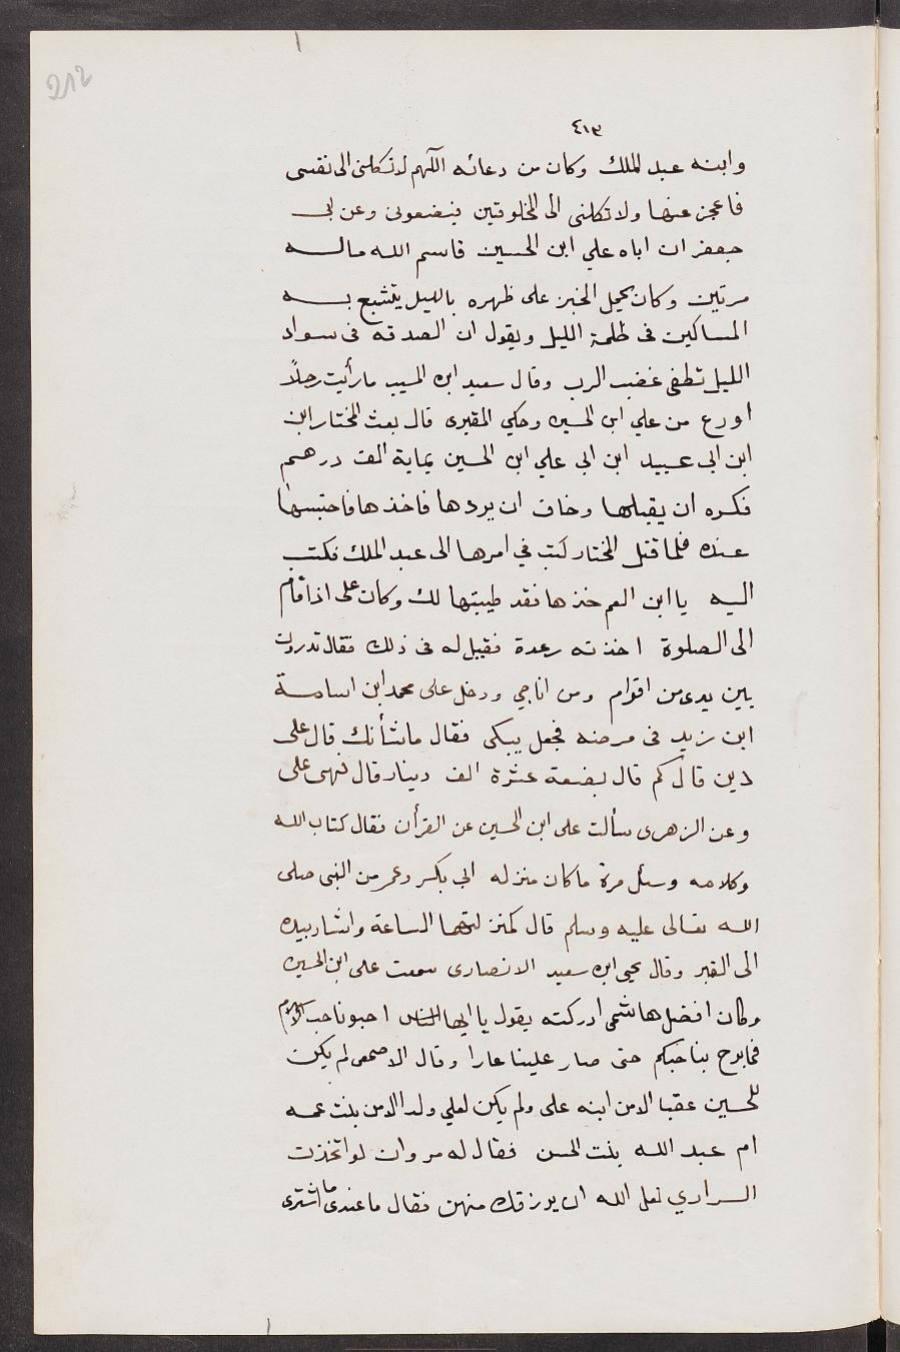 212
٤١٣
وابنه عبد الملك وكان من دعائه اللهم لا تكلنى الى نفسى
فاعجز عنها ولا تكلنى الى المخلوقين فيضعونى وعن ابى
جعفر ان اباه علي ابن الحسين قاسم الله مالــه
مرتين وكان يحمل الخبز على ظهره بالليل يتشبع بـــه
المساكين فى ظلمة الليل ويقول ان الصدقه فى سواد
الليل تطفى غضب الرب وقال سعيد ابن المسيب ما رأيت رجلاً
اورع من علي ابن الحسين وحكي المقبرى قال بعث المختار ابن
ابن ابى عبيد ابن ابي علي ابن الحسين بماية الف درهم
فكره ان يقبلها وخاف ان يردها فاخذها فاحتبسها
عنده فلما قتل المختار كتب في امرها الى عبد الملك فكتب
اليه يا ابن العم خذها فقد طيبتها لك وكان على اذا قام
الى الصلوة اخذته رعدة فقيل له فى ذلك فقال تدرون
بين يدى من اقوام ومن اناجي ودخل على محمد ابن اسامة
ابن زيد فى مرضه فجعل يبكى فقال ما شأنك قال على
دين قال كم قال بضعة عشرة الف دينار قال فهى على
وعن الزهرى سألت على ابن الحسين عن القرأن فقال كتاب الله
وكلامه وسئل مرة ما كان منزله ابى بكر وعمر من النبى صلى
الله تعالى عليه وسلم قال كمنزلتهما الساعة واشار بيده
الى القبر وقال يحيى ابن سعيد الانصارى سمعت على ابن الحسين
وكان افضل هاشمى ادركته يقول يا ايها الناس احبونا حب الاسلام
فما برح بنا حبكم حتى صار علينا عارا وقال الاصمعى لم يكن
للحسين عقبا الا من ابنه على ولم يكن لعلي ولد الا من بنت عمه
ام عبد الله بنت الحسن فقال له مروان لو اتخذت
السرارى لعل الله ان يورزقك منهن فقال ما عندى ما اشترى